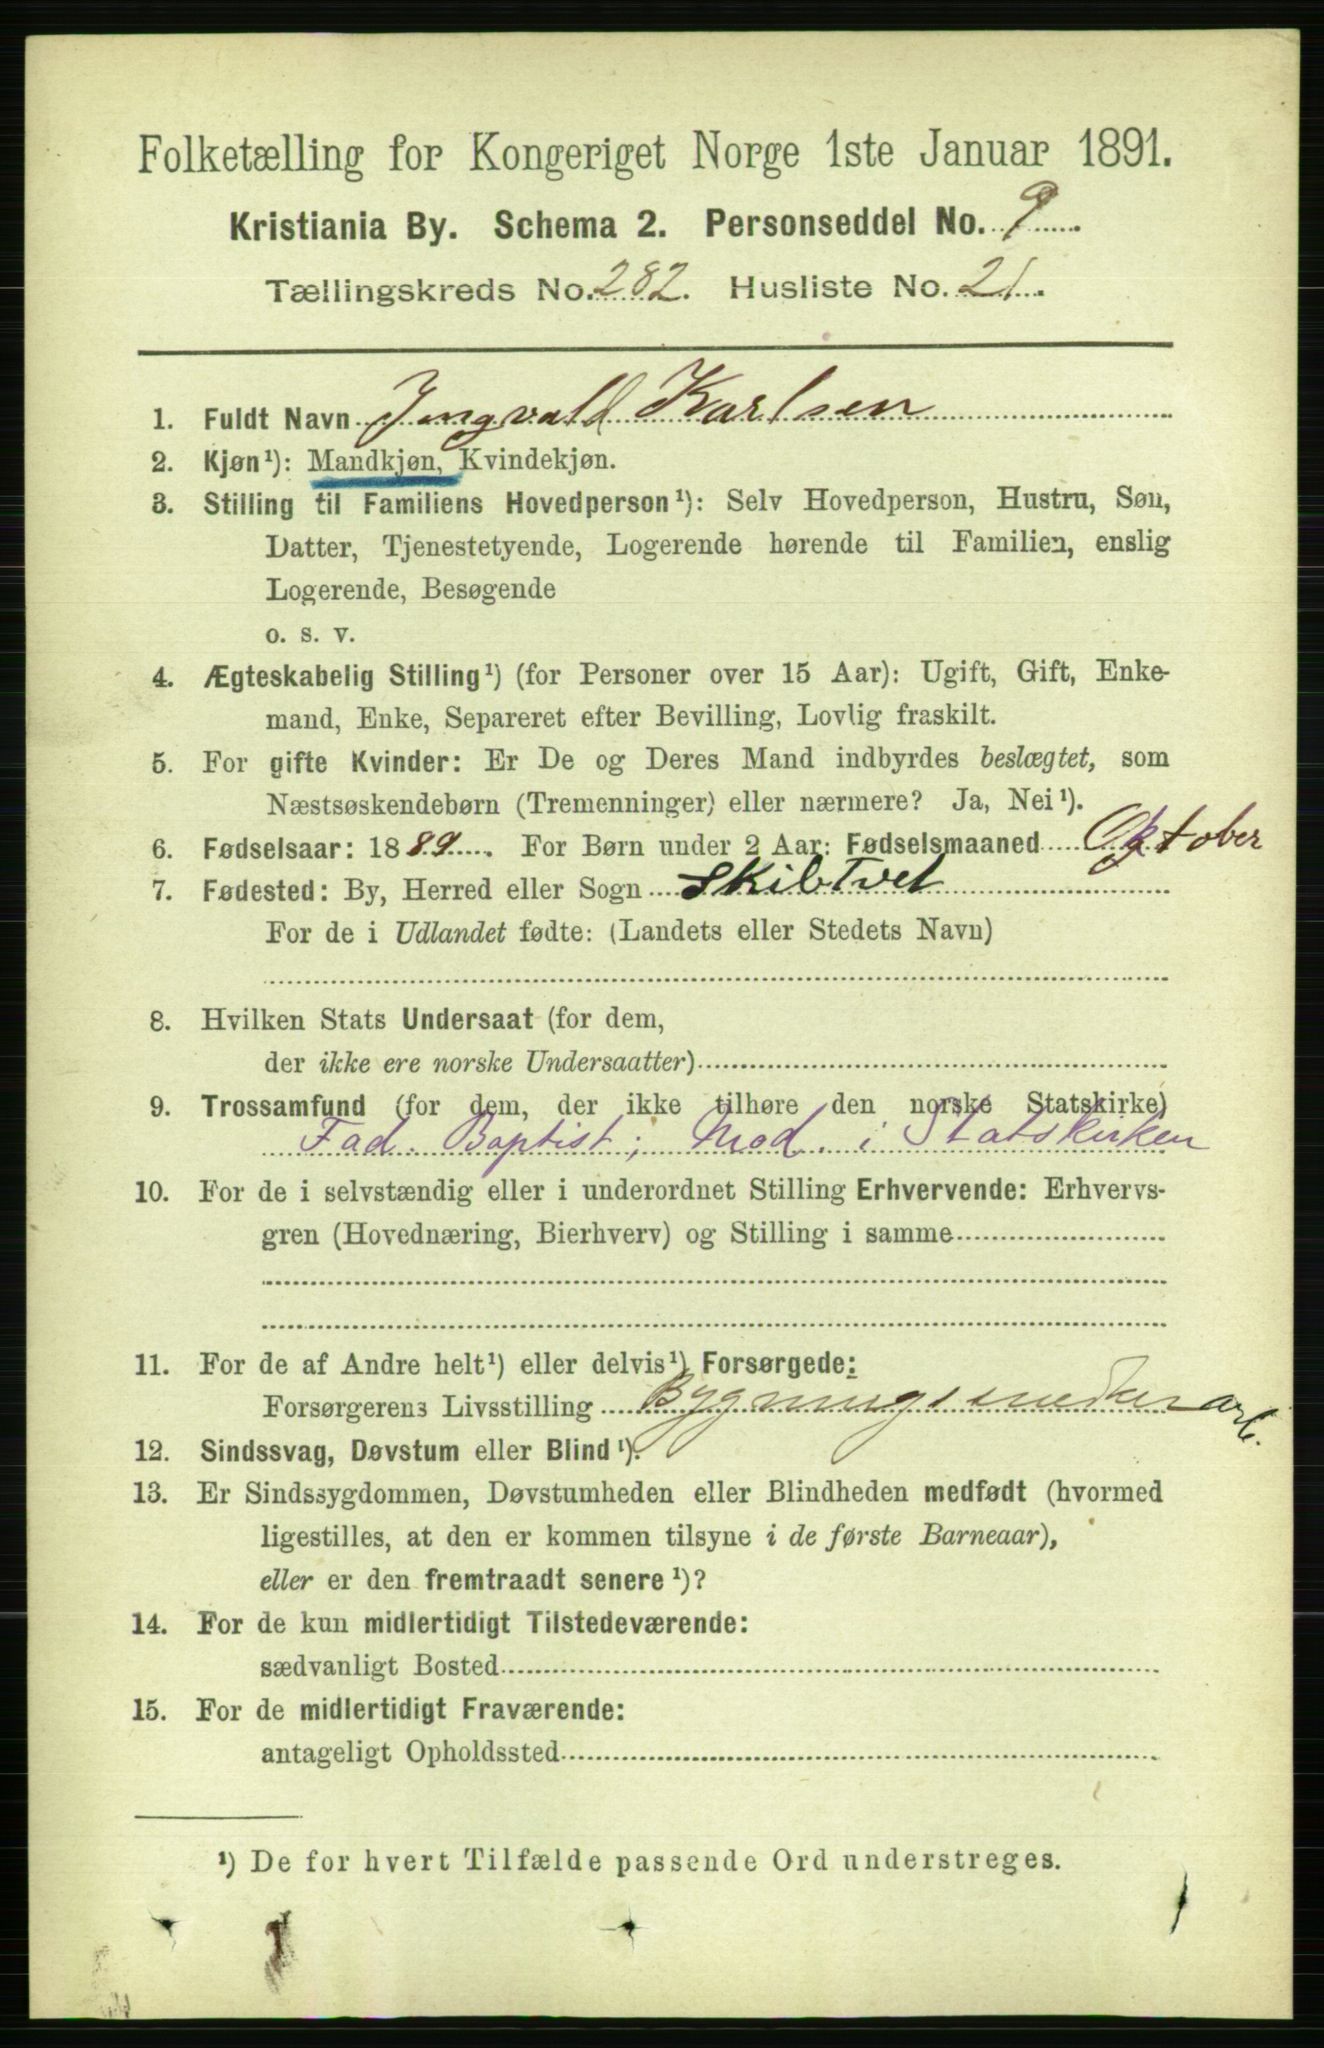 Folketælling for Kongeriget Norge 1ste Januar 1891.
Kristiania By. Schema 2. Personseddel No. 9
Tællingskreds No. 282. Husliste No. 21.
1. Fuldt Navn Ingvald Karlsen
2. Kjøn¹): Mandkjøn, Kvindekjøn.
3. Stilling til Familiens Hovedperson¹): Selv Hovedperson, Hustru, Søn,
Datter, Tjenestetyende, Logerende hørende til Familien, enslig
Logerende, Besøgende
o. s. v.
4. Ægteskabelig Stilling¹) (for Personer over 15 Aar): Ugift, Gift, Enke-
mand, Enke, Separeret efter Bevilling, Lovlig fraskilt.
5. For gifte Kvinder: Er De og Deres Mand indbyrdes beslægtet, som
Næstsøskendebørn (Tremenninger) eller nærmere? Ja, Nei¹).
6. Fødselsaar: 1889. For Børn under 2 Aar: Fødselsmaaned Oktober
7. Fødested: By, Herred eller Sogn Skibtvet
For de i Udlandet fødte: (Landets eller Stedets Navn)
8. Hvilken Stats Undersaat (for dem,
der ikke ere norske Undersaatter)
9. Trossamfund (for dem, der ikke tilhøre den norske Statskirke)
Fad. Baptist; Mod. i Statskirken
10. For de i selvstændig eller i underordnet Stilling Erhvervende: Erhvervs-
gren (Hovednæring, Bierhverv) og Stilling i samme
11. For de af Andre helt¹) eller delvis¹) Forsørgede:
Forsørgerens Livsstilling Bygningssnedkerarb.
12. Sindssvag, Døvstum eller Blind¹).
13. Er Sindssygdommen, Døvstumheden eller Blindheden medfødt (hvormed
ligestilles, at den er kommen tilsyne i de første Barneaar),
eller er den fremtraadt senere¹)?
14. For de kun midlertidigt Tilstedeværende:
sædvanligt Bosted
15. For de midlertidigt Fraværende:
antageligt Opholdssted
¹) De for hvert Tilfælde passende Ord understreges.